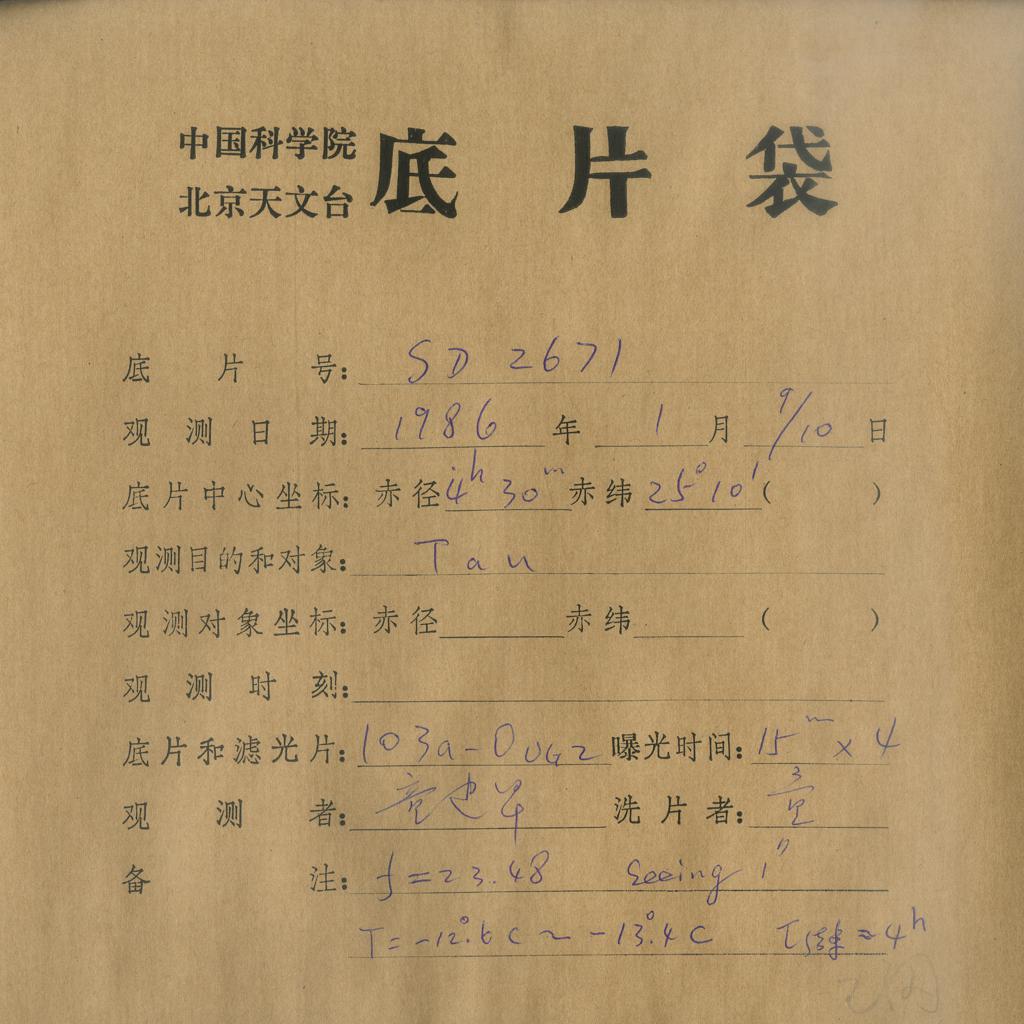 中国科学院
北京天文台
底片袋
底片号: SD 2671
观测日期: 1986 年 1 月 9/10 日
底片中心坐标: 赤径 4h 30m 赤纬 25° 10′ ( )
观测目的和对象: Tau
观测对象坐标: 赤径 赤纬 ( )
观测时刻:
底片和滤光片: 103a-O UG2 曝光时间: 15m × 4
观测者: 洗片者:
备注: f = 23.48 Seeing 1″
T = -12°.6 C ~ -13°.4 C ≈ 4h